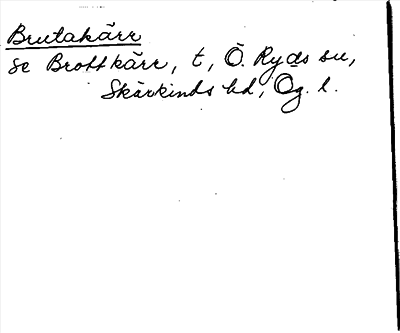 Brutakärr
se Brottkärr, t, Ö. Ryds sn,
Skärkinds hd, Ög. l.